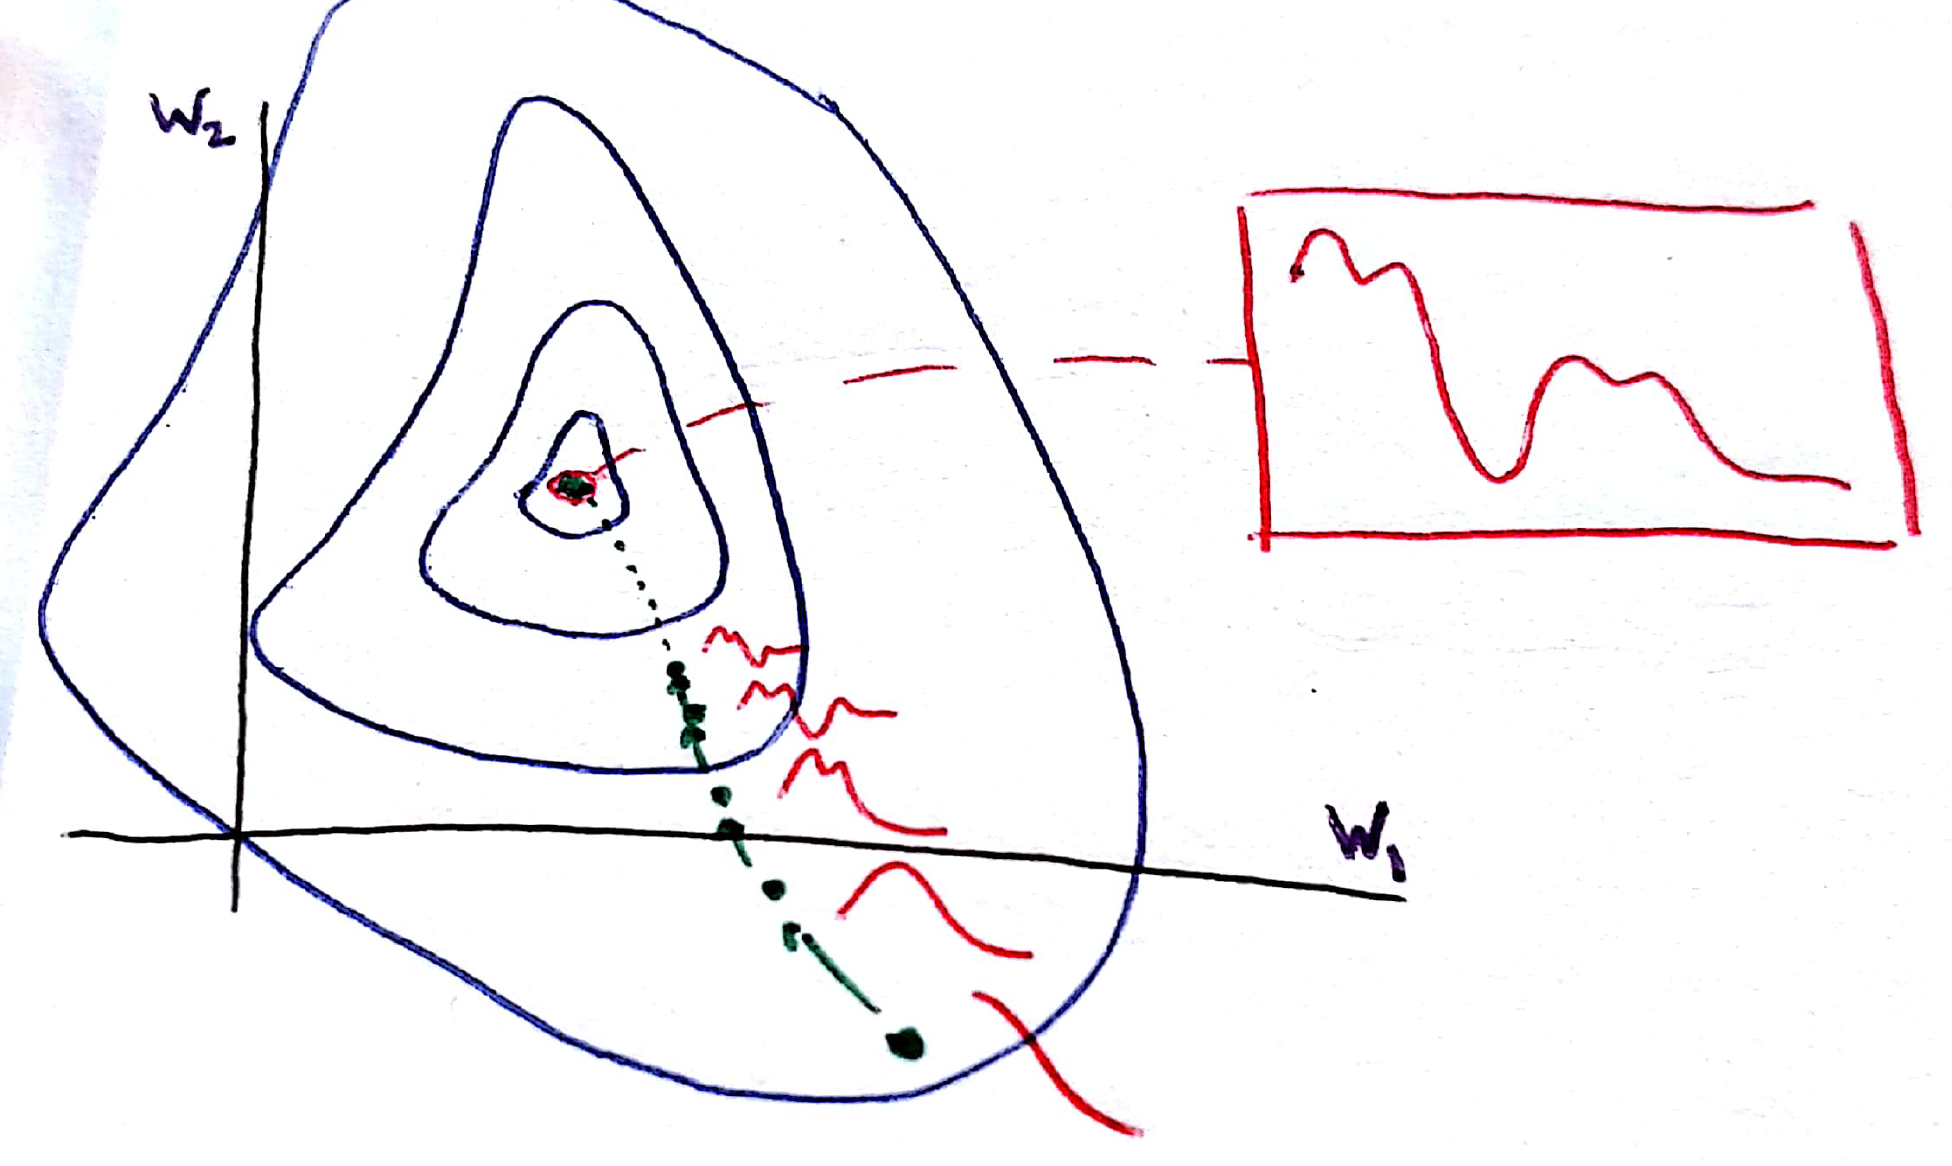 W₂
W₁